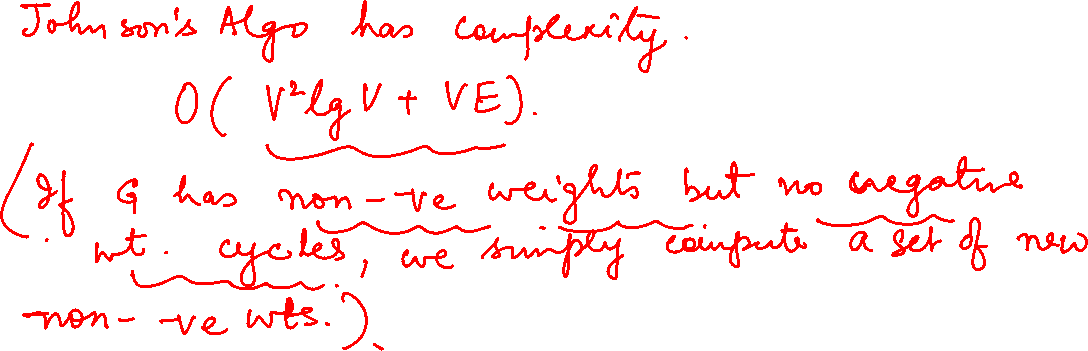 Johnson's Algo has complexity.
O( V²lg V + VE).
(If G has non-ve weights but no negative
wt. cycles, we simply compute a set of new
non- -ve wts.).